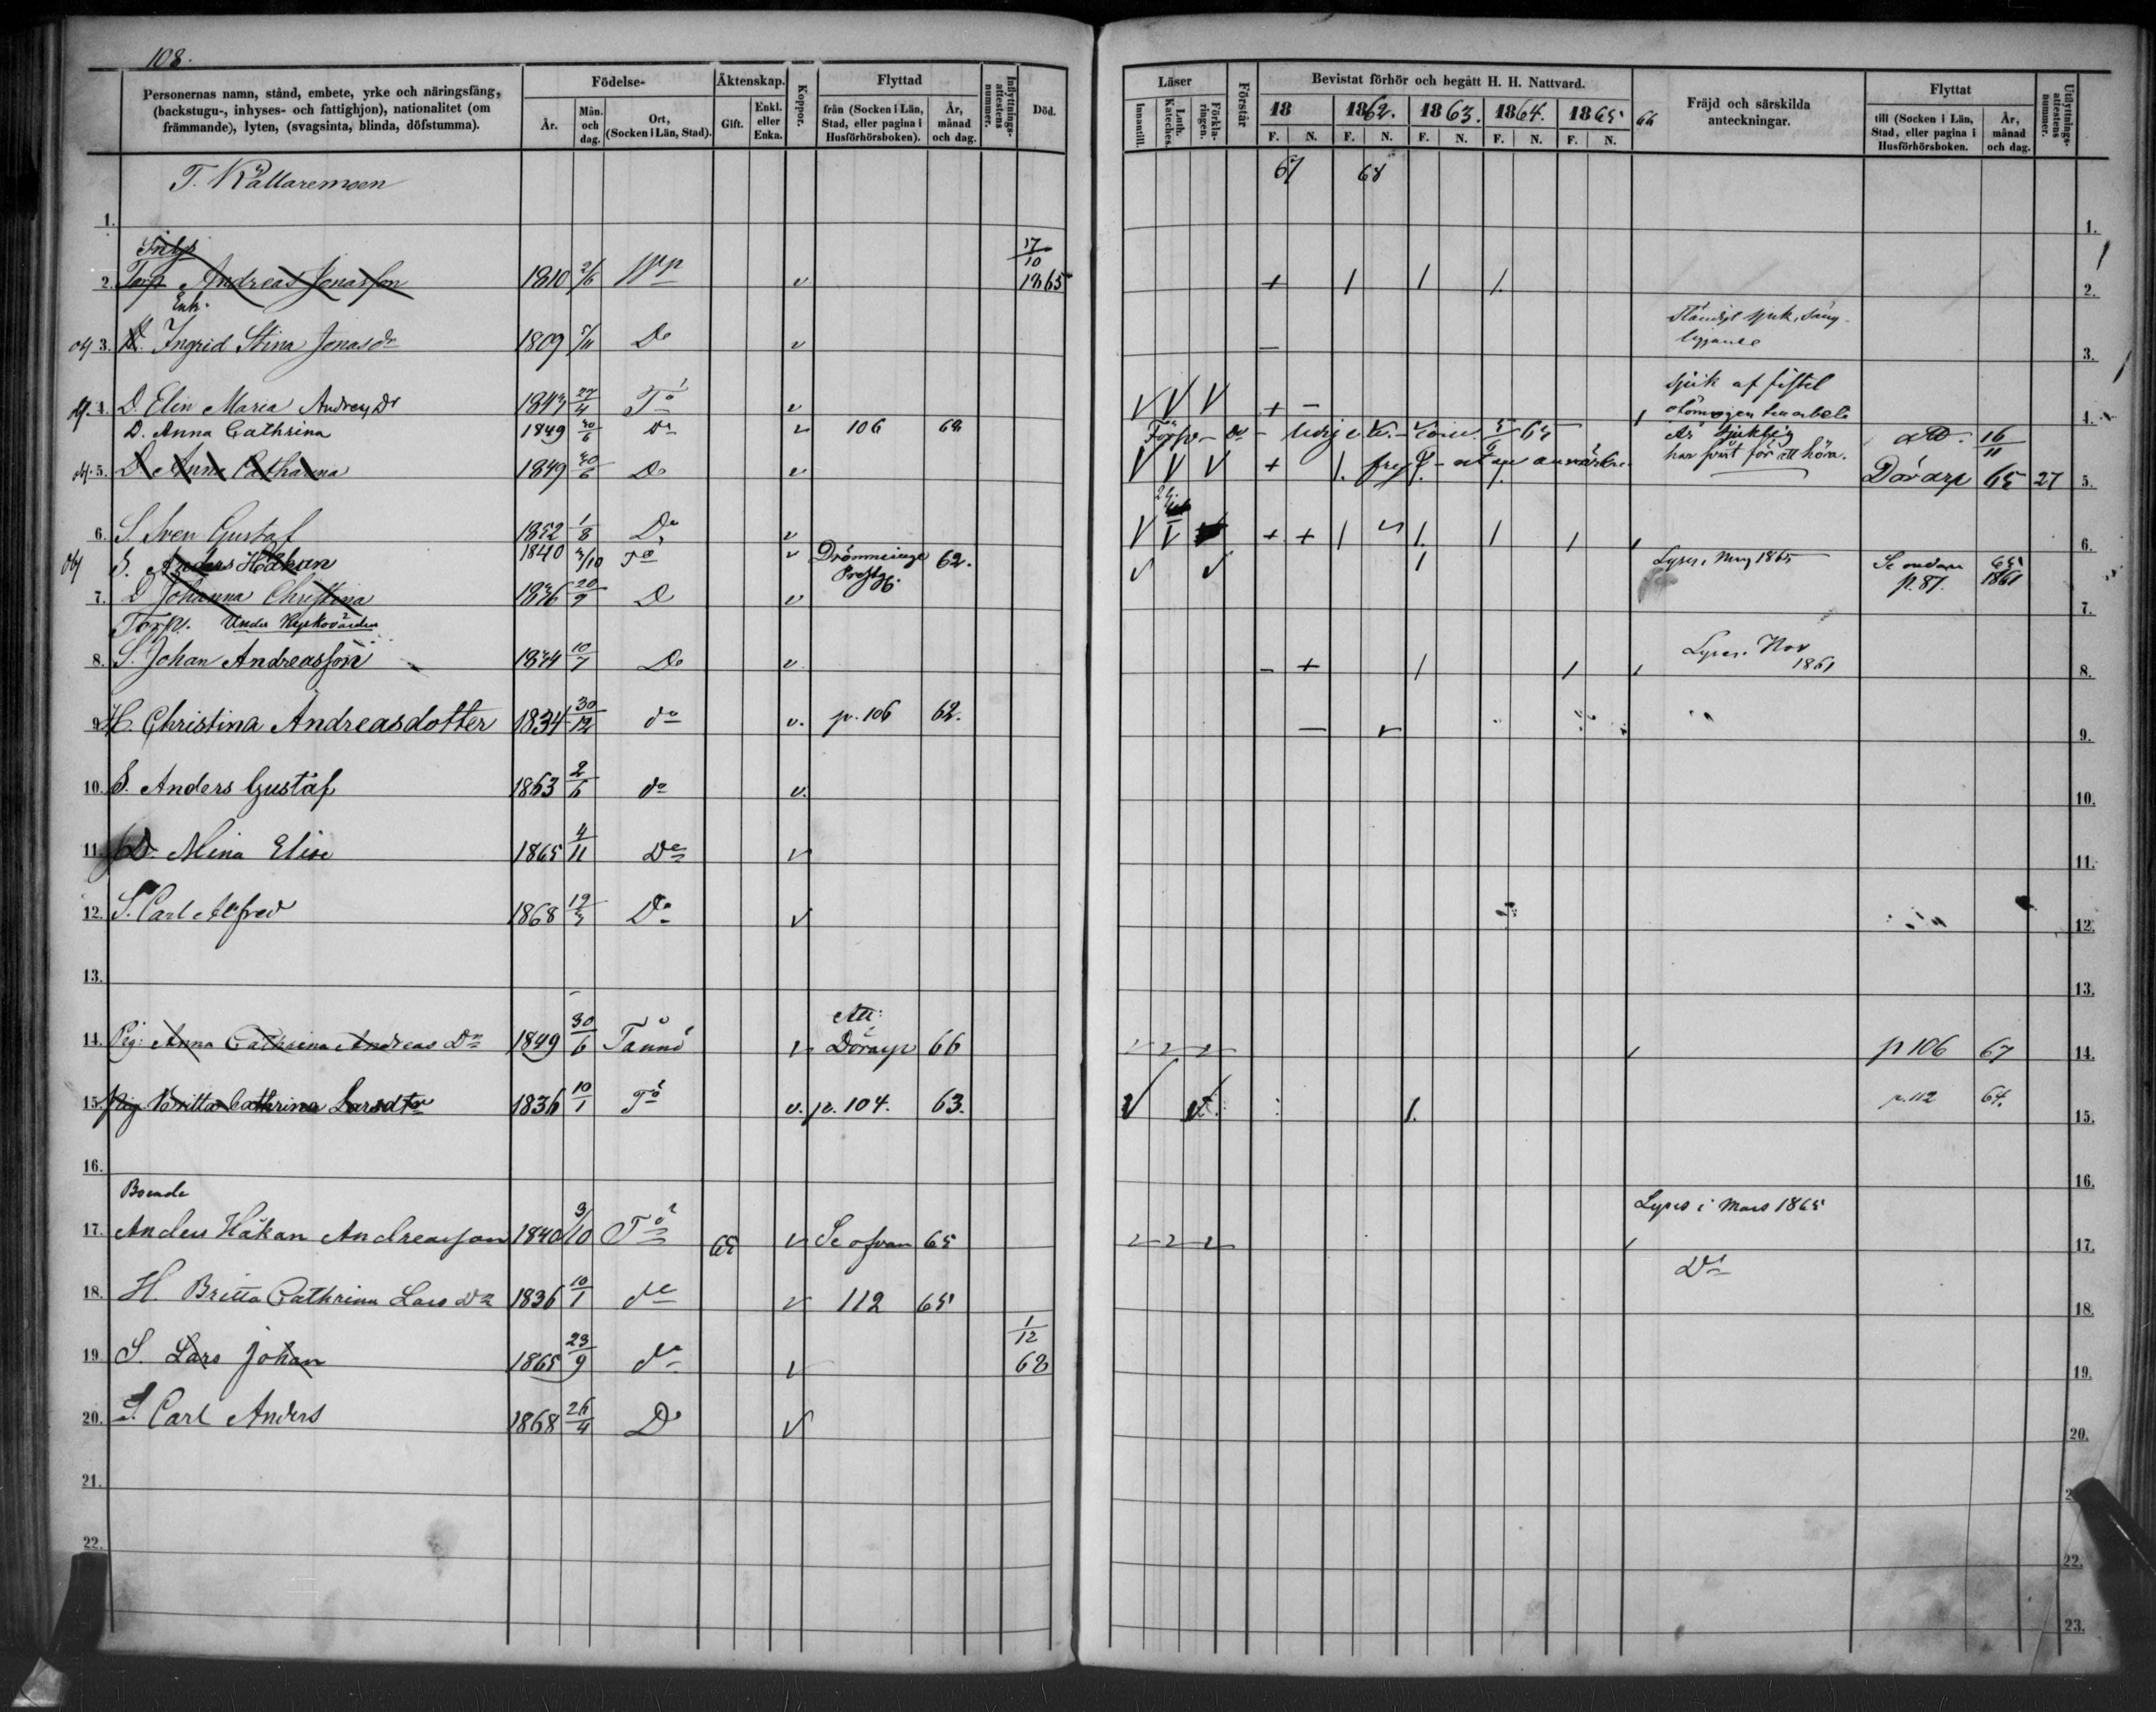 108.
Personernas namn, stånd, embete, yrke och näringsfång, (backstugu-, inhyses- och fattighjon), nationalitet (om främmande), lyten, (svagsinta, blinda, döfstumma).
Födelse-
År.
Mån. och dag.
Ort, (Socken i Län, Stad).
Äktenskap.
Gift.
Enkl. eller Enka.
Koppor.
Flyttad
från (Socken i Län, Stad, eller pagina i Husförhörsboken).
År, månad och dag.
Inflyttnings-attestens nummer.
Död.
T. Källaremoen
1.
Inhys
2. Torp. Andreas Jonasson 1810 2/6 v 17/10 1865
Enk.
obj 3. Ingrid Stina Jonasdr 1809 5/11 Do v
obj. 4. D. Elin Maria Andreæ Dr 1843 27/4 Tö v
D. Anna Cathrina 1849 30/6 Do v 106 62
obj. 5. D. Anna Catharina 1849 30/6 Do v
6. S. Sven Gustaf 1852 1/8 Do v
obj S. Anders Håkan 1840 3/10 Tö v Drömminge Prestg. 62.
7. D Johanna Christina 1836 20/9 D v
Torp. Under Kyrkovärden
8. S. Johan Andreasson 1834 10/7 Do v
9. H. Christina Andreasdotter 1834 30/12 do v. p. 106 62.
10. S. Anders Gustaf 1863 2/6 do v.
11. D. Mina Elise 1865 4/11 Do v
12. S. Carl Alfred 1868 19/3 Do v
13.
Att:
14. Pig: Anna Cathrina Andreas Dr 1849 30/6 Tånnö v Dörarp 66
15. Pig Britta Cathrina Larsdtr 1836 10/1 Tö v. p. 104. 63.
16.
Boende
17. Anders Håkan Andreasson 1840 3/10 Tö 65 v Se ofvan 65
18. H. Britta Cathrina Lars Dr 1836 10/1 do v 112 65
19. S. Lars Johan 1865 23/9 do v 1/12 68
20. S. Carl Anders 1868 26/4 Do v
21.
22.
Läser
Innantill.
Luth. Kateches.
Förklaringen.
Förstår
Bevistat förhör och begått H. H. Nattvard.
18 1862. 1863. 1864. 1865 66
F. N. F. N. F. N. F. N. F. N.
Fräjd och särskilda anteckningar.
Flyttat
till (Socken i Län, Stad, eller pagina i Husförhörsboken.
År, månad och dag.
Utflyttnings-attestens nummer.
67 68
1.
+ 1 1 1. 2.
Ständigt sjuk, säng-
liggande
— 3.
sjuk af fistel
V V V + — 4.
Är sjuklig 16/11
har svårt för att höra.
V V V + 1. Dörarp 65 27 5.
V V + + 1 1. 1 1 1 6.
V V 1 Lyses, Maj 1865 Se nedan 65
p. 87. 1861
7.
— + 1 1 1 Lyses. Nov 1861 8.
— 9.
10.
11.
12.
13.
1 p 106 67 14.
V 1. p. 112 64. 15.
16.
Lyses i Mars 1865
17.
Do
18.
19.
20.
22.
23.